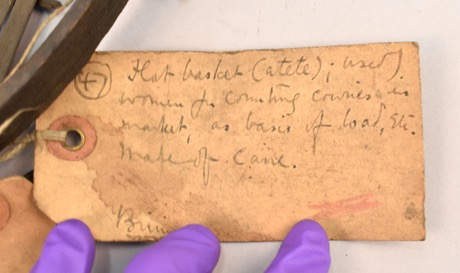 47 Flat basket (atete); used by
women for counting cowries in
market, as basis of load, etc.
Made of cane.